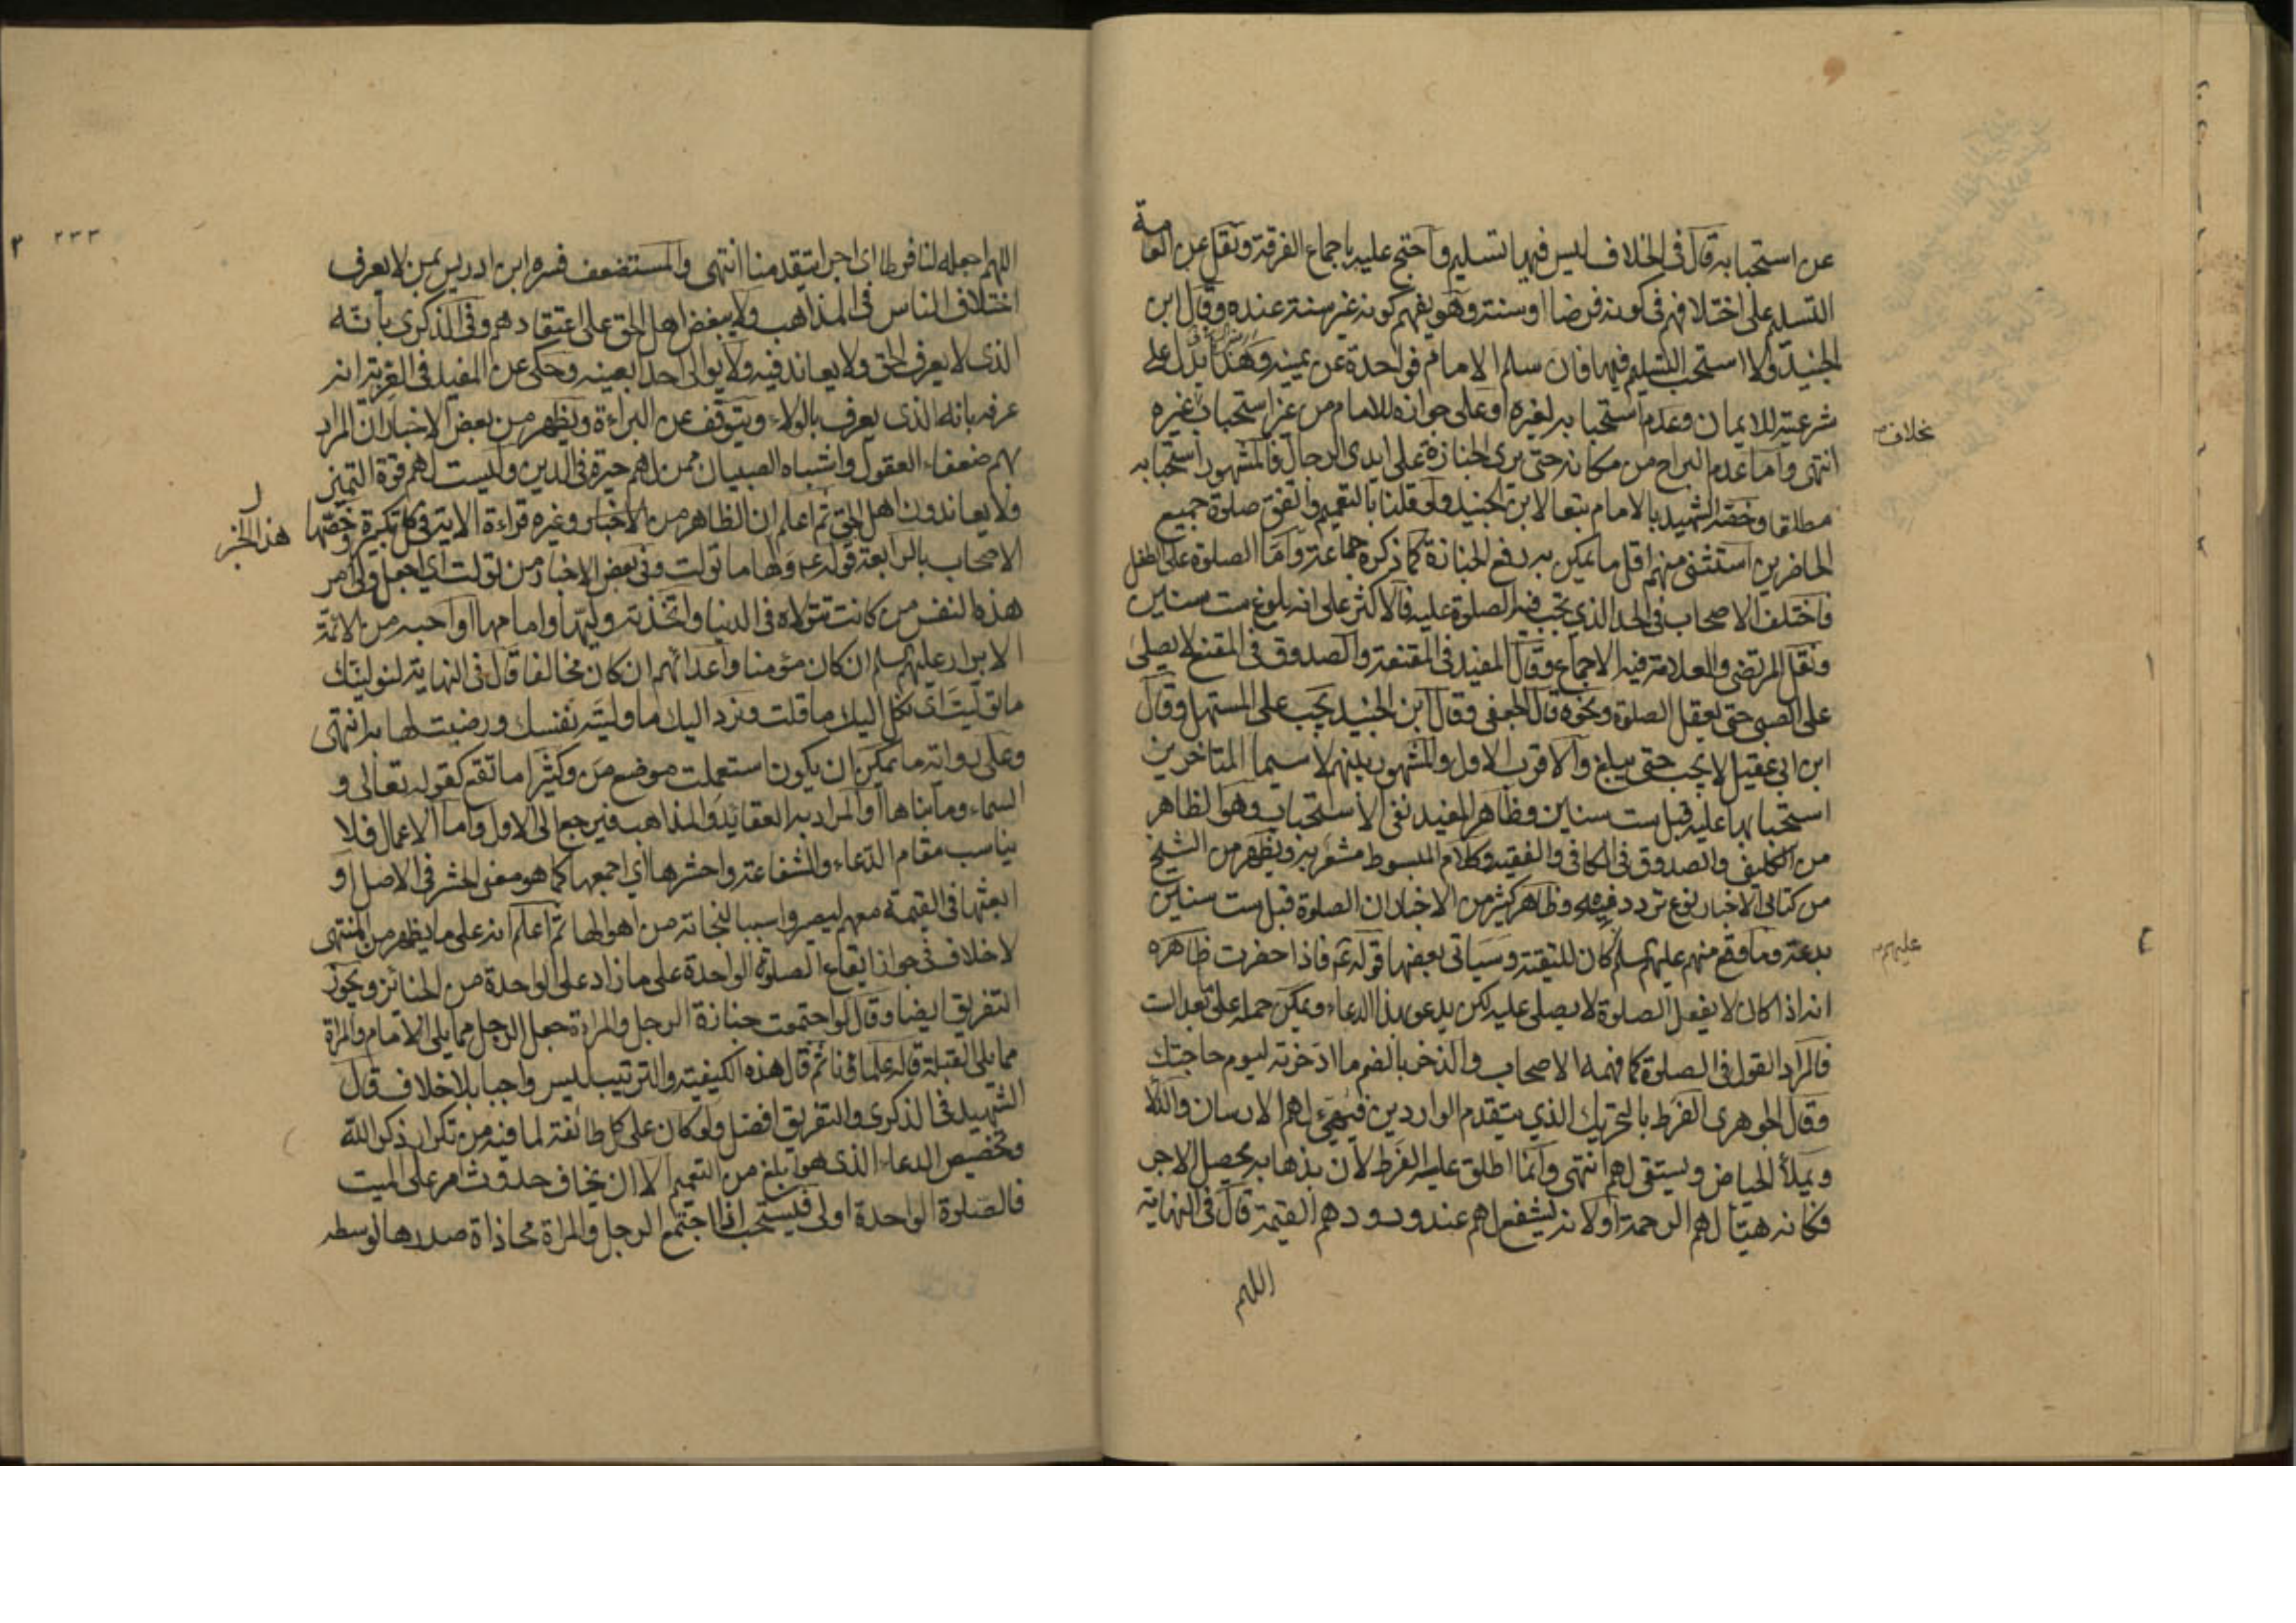 عن استحبابه قال في الخلاف ليس فيها تسليم واحتج عليه باجماع الفرقة ونقل عن العامة
التسليم على اختلافهم في كونه فرضا او سنة وهو يفهم كونه غير سنة عنده وقال ابن
الجنيد ولا استحب التسليم فيها فان سلم الامام فواحدة عن يمينه وهذا يدل على
شرعيته للامام وعدم استحبابه لغيره او على جوازه للامام من غير استحباب غيره
بخلاف
انتهى واما عدم البراح من مكانه حتى يرى الجنازة على ايدى الرجال فالمشهور استحبابه
مطلقا وخصه الشهيد بالامام تبعا لابن الجنيد ولو قلنا بالتعميم واتفق صلوة جميع
الحاضرين استثنى منهم اقل ما يمكن به رفع الجنازة كما ذكره جماعة واما الصلوة على الطفل
فاختلف الاصحاب في الحد الذي تجب فيه الصلوة عليه فالاكثر على انه بلوغ ست سنين
ونقل المرتضى والعلامة فيه الاجماع وقال المفيد في المقنعة والصدوق في المقنع لا يصلى
على الصبى حتى يعقل الصلوة ونحوه قال الجعفى وقال ابن الجنيد يجب على المستهل وقال
ابن ابى عقيل لا يجب حتى يبلغ والاقرب الاول والمشهور بينهم لا سيما المتاخرين
استحبابها عليه قبل ست سنين وظاهر المفيد نفى الاستحباب وهو الظاهر
من الكلينى والصدوق في الكافى والفقيه وكلام المبسوط مشعر به ويظهر من الشيخ
من كتابى الاخبار نوع تردد فيه وظاهر كثير من الاخبار ان الصلوة قبل ست سنين
بدعة وما وقع منهم عليهم السلم كان للتقية وسياتى بعضها قوله ع فاذا حضرت ظاهره
عليهم
انه اذا كان لا يفعل الصلوة لا يصلى عليه لكن يدعى بهذا الدعاء ويمكن حمله على بعد الست
فالمراد القول في الصلوة كما فهمه الاصحاب والذخر بالضم ما ادخرته ليوم حاجتك
وقال الجوهرى الفرط بالتحريك الذي يتقدم الواردين فيهيئ لهم الارسان والدلا
ويملأ الحياض ويستقى لهم انتهى وانما اطلق عليه الفرط لان بذهابه يحصل الاجر
فكانه هيأ لهم الرحمة او لانه يشفع لهم عند ورودهم القيمة قال في النهاية
اللهم
٢٣٣
اللهم اجعله لنا فرطا اى اجرا يتقدمنا انتهى والمستضعف فسره ابن ادريس بمن لا يعرف
اختلاف الناس في المذاهب ولا يبغض اهل الحق على اعتقادهم وفي الذكرى بانه
الذى لا يعرف الحق ولا يعاند فيه ولا يوالى احدا بعينه وحكى عن المفيد في الغرية انه
عرفه بانه الذى يعرف بالولاء ويتوقف عن البراءة ويظهر من بعض الاخبار ان المراد
بهم ضعفاء العقول واشباه الصبيان ممن لهم حيرة في الدين وليست لهم قوة التميز
ولا يعاندون اهل الحق ثم اعلم ان الظاهر من الاخبار وغيره قراءة الاية في كل تكبيرة وخصها
هذا الخبر
الاصحاب بالرابعة قوله ع ولها ما تولت وفي بعض الاخبار من تولت اى اجعل ولى امر
هذه النفس من كانت تتولاه في الدنيا واتخذته وليها وامامها او احبه من الائمة
الابرار عليهم السلم ان كان مؤمنا واعدائهم ان كان مخالفا قال في النهاية لنولينك
ما توليت اى نكل اليك ما قلت ونرد اليك ما وليته نفسك ورضيت لها به انتهى
وعلى رواية ما يمكن ان يكون استعملت موضع من وكثيرا ما تقع كقوله تعالى و
السماء وما بناها او المراد به العقائد والمذاهب فيرجع الى الاول واما الاعمال فلا
يناسب مقام الدعاء والشفاعة واحشرها اى اجمعها كما هو معنى الحشر في الاصل او
ابعثها في القيمة معهم ليصيروا سببا لنجاته من اهوالها ثم اعلم انه على ما يظهر من المنتهى
لا خلاف في جواز ايقاع الصلوة الواحدة على ما زاد على الواحدة من الجنائز ويجوز
التفريق ايضا وقال لو اجتمعت جنازة الرجل والمراة جعل الرجل مما يلى الامام والمراة
مما يلى القبلة قاله علماؤنا ثم قال هذه الكيفية والترتيب ليس واجبا بلا خلاف قال
الشهيد في الذكرى والتفريق افضل ولو كان على كل طائفة لما فيه من تكرار ذكر الله
وتخصيص الدعاء الذى هو ابلغ من التعميم الا ان يخاف حدوث امر على الميت
فالصلوة الواحدة اولى فيستحب اذا اجتمع الرجل والمراة محاذاة صدرها لوسطه